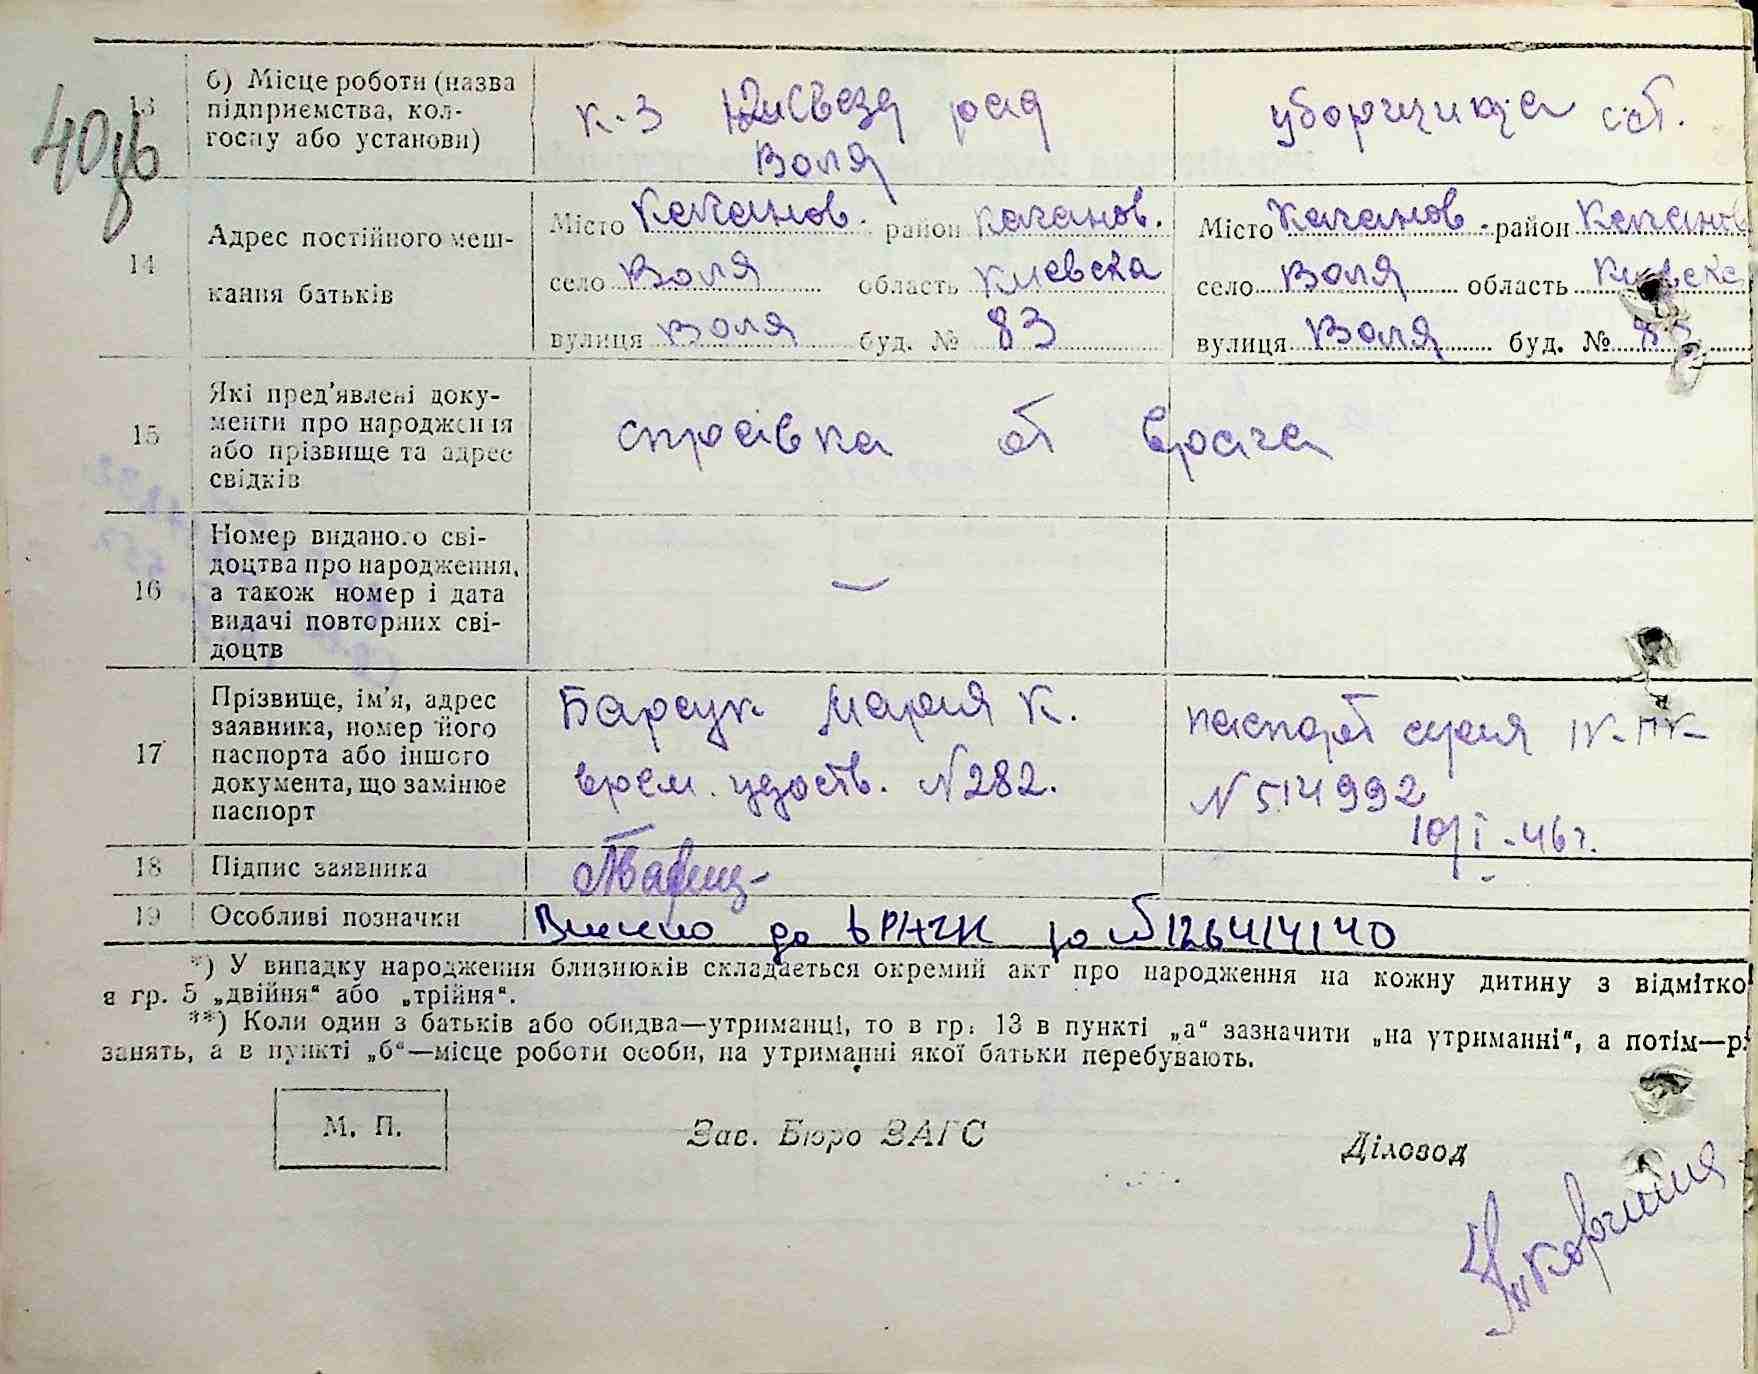 40
13 б) Місце роботи (назва підприємства, колгоспу або установи) к-з рад Воля уборщица ст.
14 Адрес постійного мешкання батьків
Місто Каганов. район Каганов. Місто Каганов. район Каганов
село Воля область Киевска село Воля область Киевска
вулиця Воля буд. № 83 вулиця Воля буд. № 83
15 Які пред'явлені документи про народження або прізвище та адрес свідків справка от врача
16 Номер виданого свідоцтва про народження, а також номер і дата видачі повторних свідоцтв —
17 Прізвище, ім'я, адрес заявника, номер його паспорта або іншого документа, що замінює паспорт
Барсук Мария К. паспорт серия IV-ПК
врем. удоств. N 282. N 514992
10/I-46 г.
18 Підпис заявника
19 Особливі позначки Внесено до ВРАЧК за № 126414140
*) У випадку народження близнюків складається окремий акт про народження на кожну дитину з відмітко
в гр. 5 „двійня“ або „трійня“.
**) Коли один з батьків або обидва—утриманці, то в гр. 13 в пункті „а“ зазначити „на утриманні“, а потім—р
занять, а в пункті „б“—місце роботи особи, на утриманні якої батьки перебувають.
М. П. Зав. Бюро ЗАГС Діловод